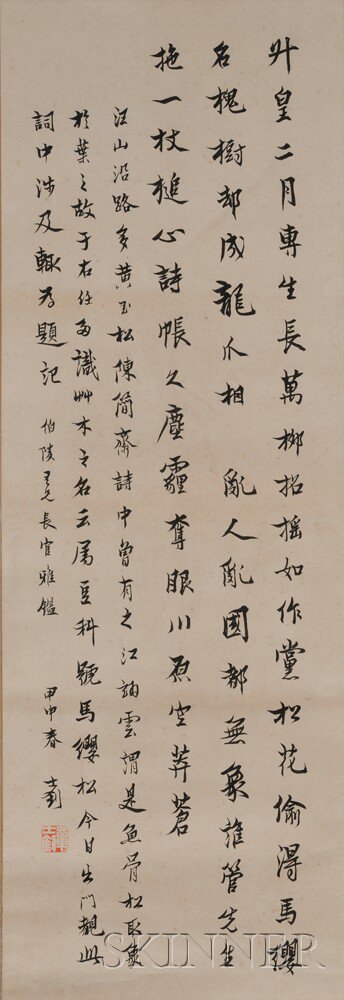 皇二月專生長萬柳招搖如作黨松花偷得馬纓
名槐樹却成龍爪相亂人亂國都無象誰管先生
拖一杖搥心詩帳久塵霾奪眼川原空莽蒼
江山沿路多黃玉松陳簡齋詩中曾有之江詞雲謂是魚骨松取象
於葉之故于右任為識艸木之名云屬豆科號馬纓松今日出門親此
詞中涉及輒為題記
伯陵長官雅鑑
甲申春士
SKINNER